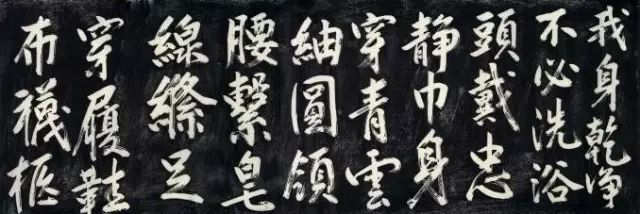 我身乾净
不必洗浴
頭戴忠
静巾身
穿青雲
紬圓領
腰繫皂
線縧足
穿履鞋
布襪柩